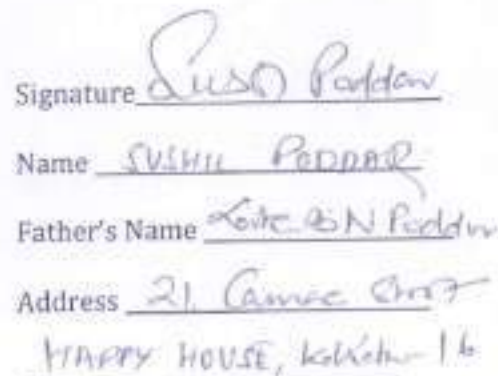 Signature Sush Poddar
Name SUSHIL PODDAR
Father's Name Late BN Poddar
Address 21, Camac Street
HAPPY HOUSE, Kolkata-16